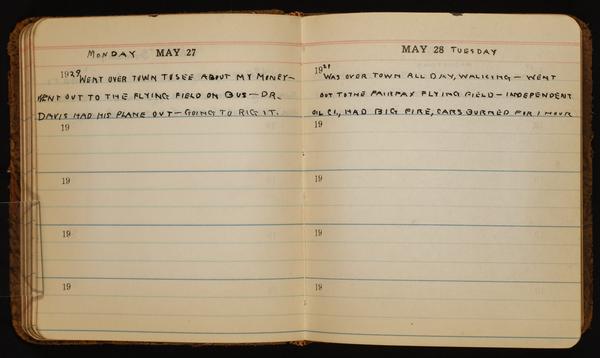 MONDAY MAY 27
1929 WENT OVER TOWN TO SEE ABOUT MY MONEY-
WENT OUT TO THE FLYING FIELD ON BUS- DR.
DAVIS HAD HIS PLANE OUT- GOING TO RIG IT.
19
19
19
19
MAY 28 TUESDAY
1929 WAS OVER TOWN ALL DAY, WALKING- WENT
OUT TO THE FAIRFAX FLYING FIELD- INDEPENDENT
OIL CI., HAD BIG FIRE, CARS BURNED FOR 1 HOUR
19
19
19
19